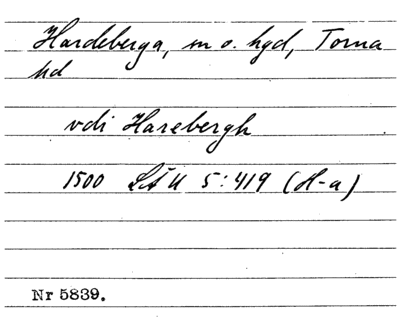 Hardeberga, sn o. hgd, Torna
hd
vdi Harebergh
1500 LÄU 5:419 (H-a)
Nr 5839.